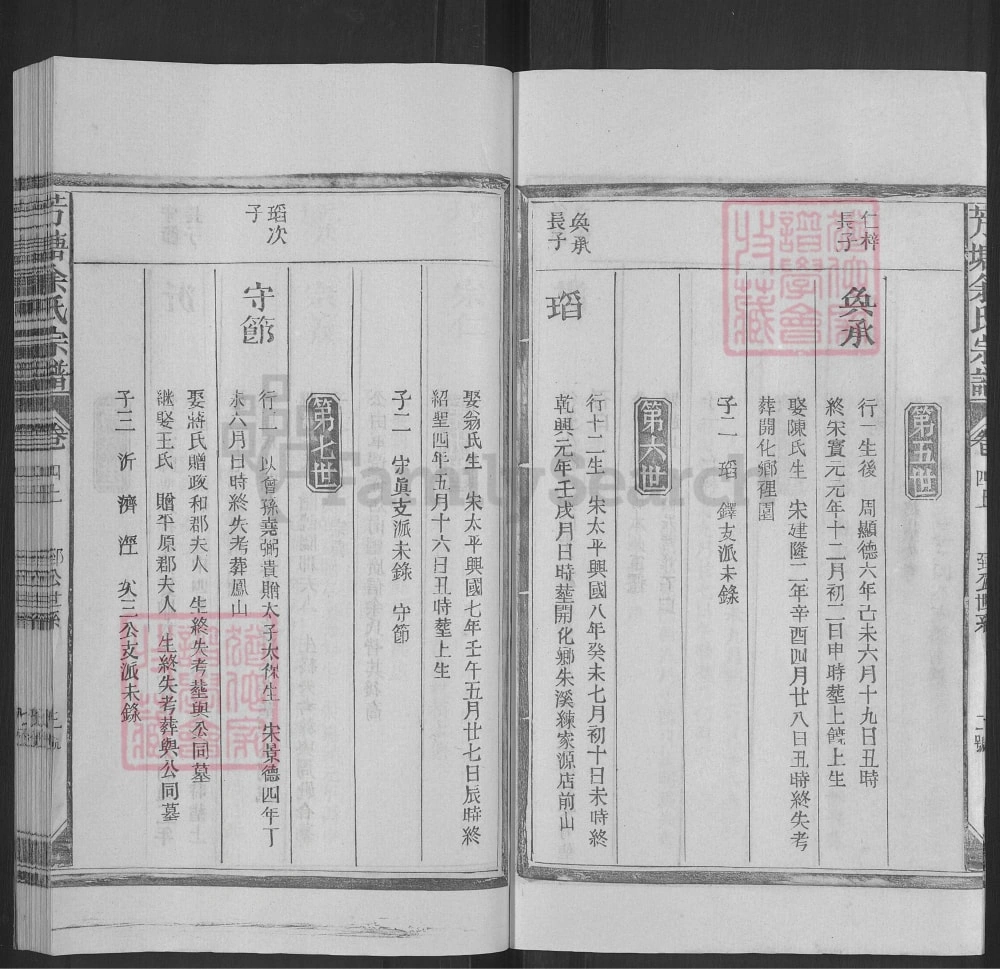 芳塘余氏宗譜
第五世
仁梓長子
奐承
行一生後 周顯德六年己未六月十九日丑時
終宋寶元元年十二月初二日申時塟上饒上生
娶陳氏生 宋建隆二年辛酉四月廿八日丑時終失考
葬開化鄉裡園
子二 瑫 鐸支派未錄
第六世
奐承長子
瑫
行十二生 宋太平興國八年癸未七月初十日未時終
乾興元年壬戌月日時塟開化鄉朱溪練家源店前山
娶翁氏生 宋太平興國七年壬午五月廿七日辰時終
紹聖四年五月十六日丑時塟上生
子二 守眞支派未錄 守節
第七世
瑫次子
守節
行一 以曾孫堯弼貴贈太子太保生 宋景德四年丁
未六月日時終失考葬鳳山
娶蔣氏贈政和郡夫人 生終失考塟與公同墓
繼娶王氏 贈平原郡夫人 生終失考葬與公同墓
子三 沂 濟 涇 次三公支派未錄
芳塘余氏宗譜
FamilySearch